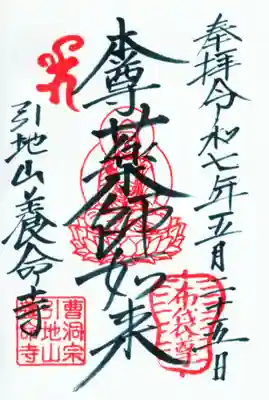 奉拝 令和七年五月二十五日
本尊薬師如来
引地山養命寺
布袋尊
曹洞宗
引地山
養命寺